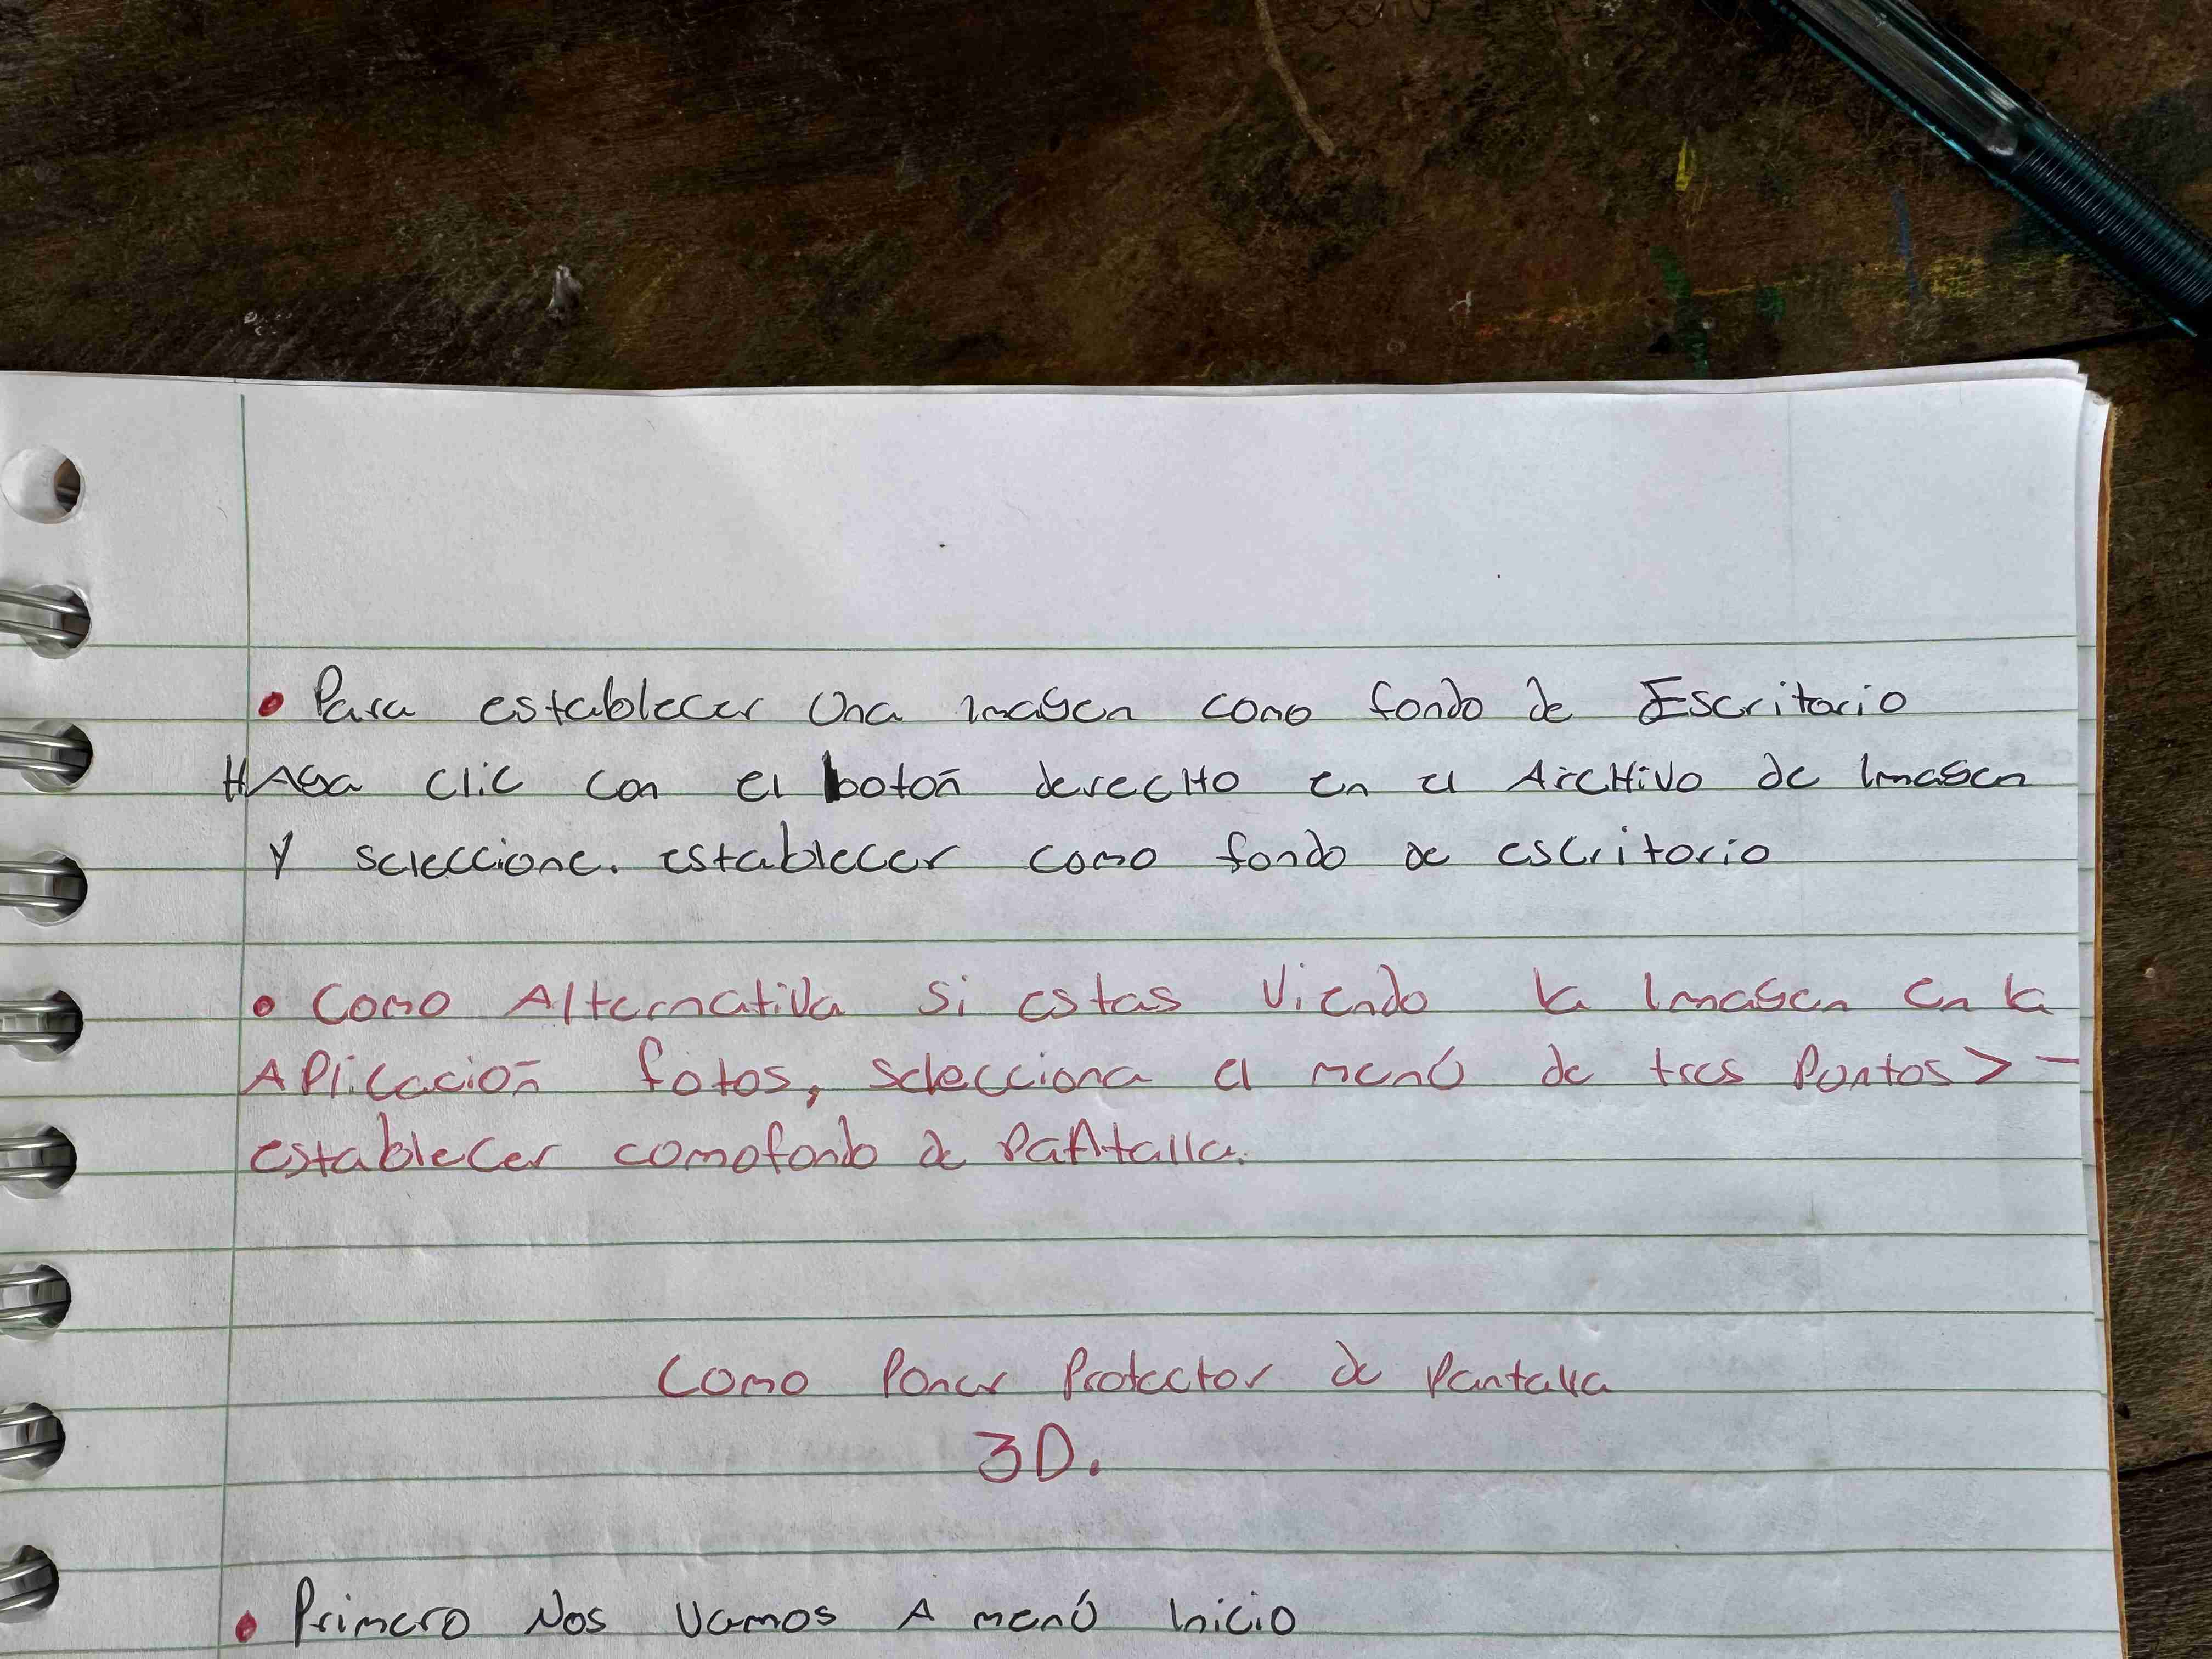 • Para establecer una imagen como fondo de Escritorio
HAga clic con el botón derecHo en el ArcHivo de imagen
y seleccione. establecer como fondo de escritorio
• Como Alternativa si estas viendo la imagen en la
APlicación fotos, selecciona el menú de tres Puntos > -
establecer comofondo de PaNtalla.
Como Poner Protector de Pantalla
3D.
• Primero Nos vamos A menú inicio